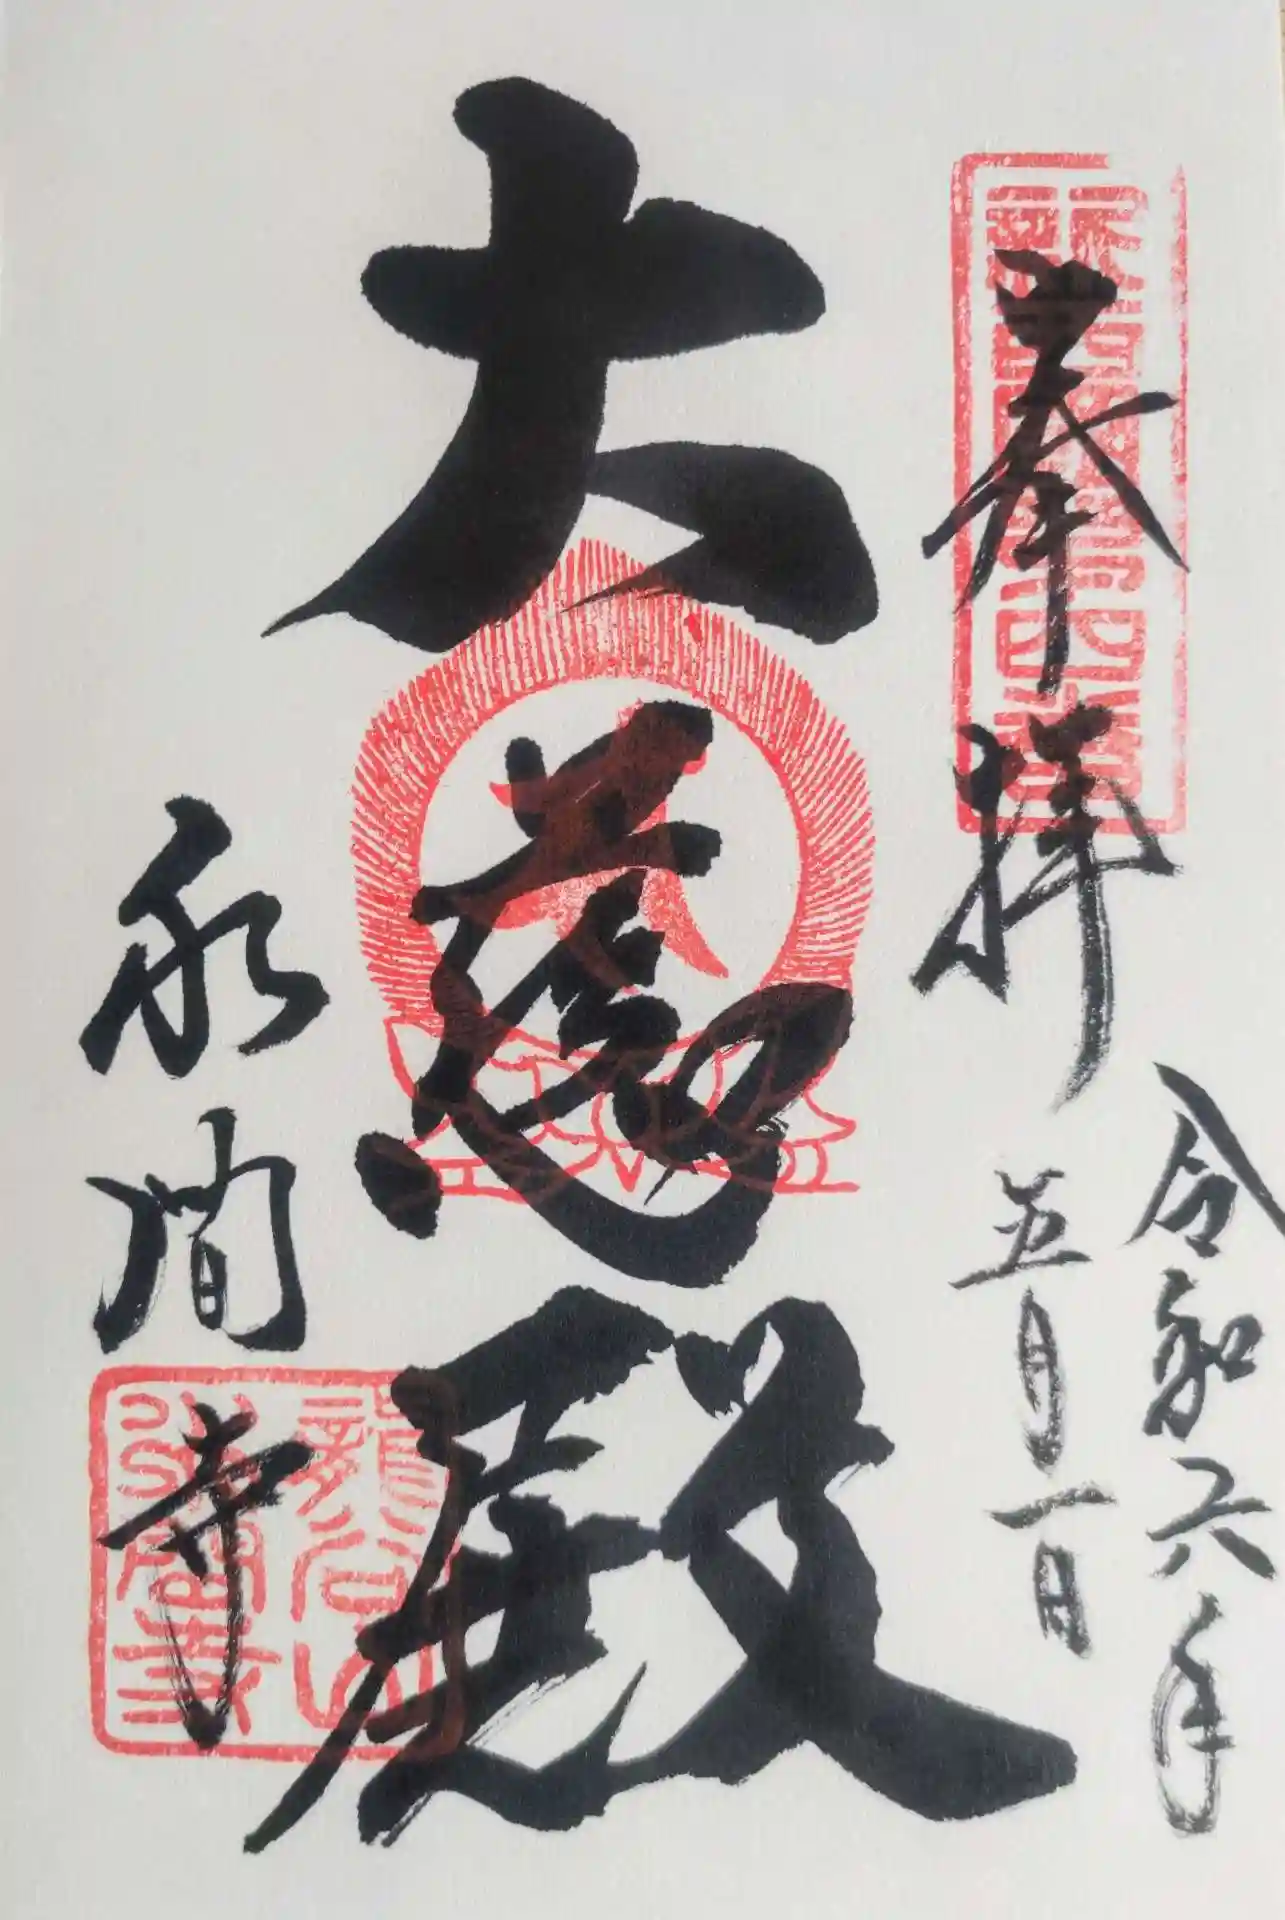 奉拝
令和六年
五月一日
大慈殿
永澗寺